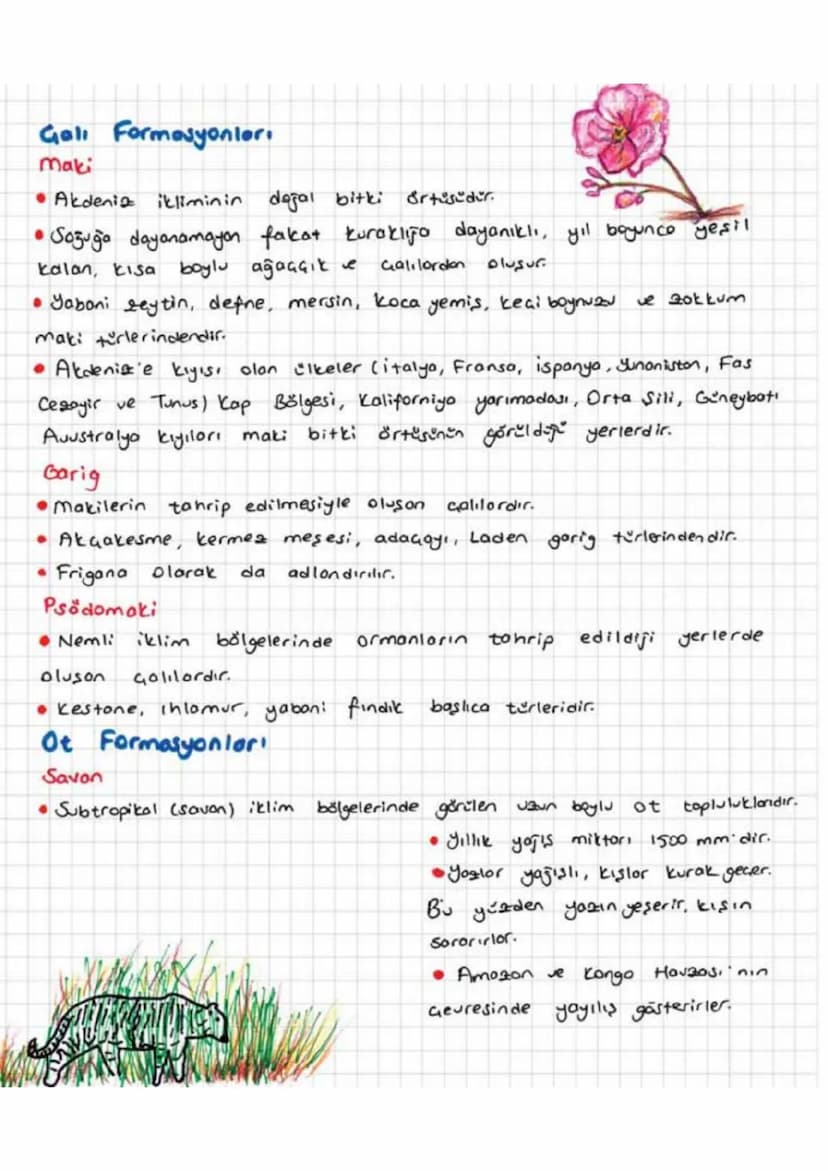 Çalı Formasyonları
Maki
• Akdeniz ikliminin doğal bitki örtüsüdür.
• Soğuğa dayanamayan fakat kuraklığa dayanıklı, yıl boyunca yeşil
kalan, kısa boylu ağaççık ve çalılardan oluşur.
• Yabani zeytin, defne, mersin, koca yemiş, keçi boynuzu ve zokkum
maki türlerindendir.
• Akdeniz'e kıyısı olan ülkeler (italya, Fransa, ispanya, Yunanistan, Fas
Cezayir ve Tunus) Kap Bölgesi, Kaliforniya yarımadası, Orta Şili, Güneybatı
Avustralya kıyıları maki bitki örtüsünün görüldüğü yerlerdir.
Garig
• Makilerin tahrip edilmesiyle oluşan çalılardır.
• Akçakesme, kermez meşesi, adaçayı, Laden garig türlerindendir.
• Frigana olarak da adlandırılır.
Psödomaki
• Nemli iklim bölgelerinde ormanların tahrip edildiği yerlerde
oluşan çalılardır.
• Kestane, ıhlamur, yabani fındık başlıca türleridir.
Ot Formasyonları
Savan
• Subtropikal (savan) iklim bölgelerinde görülen uzun boylu ot topluluklarıdır.
• Yıllık yağış miktarı 1500 mm'dir.
• Yazlar yağışlı, kışlar kurak geçer.
Bu yüzden yazın yeşerir, kışın
sararırlar.
• Amazon ve Kongo Havzası'nın
çevresinde yayılış gösterirler.